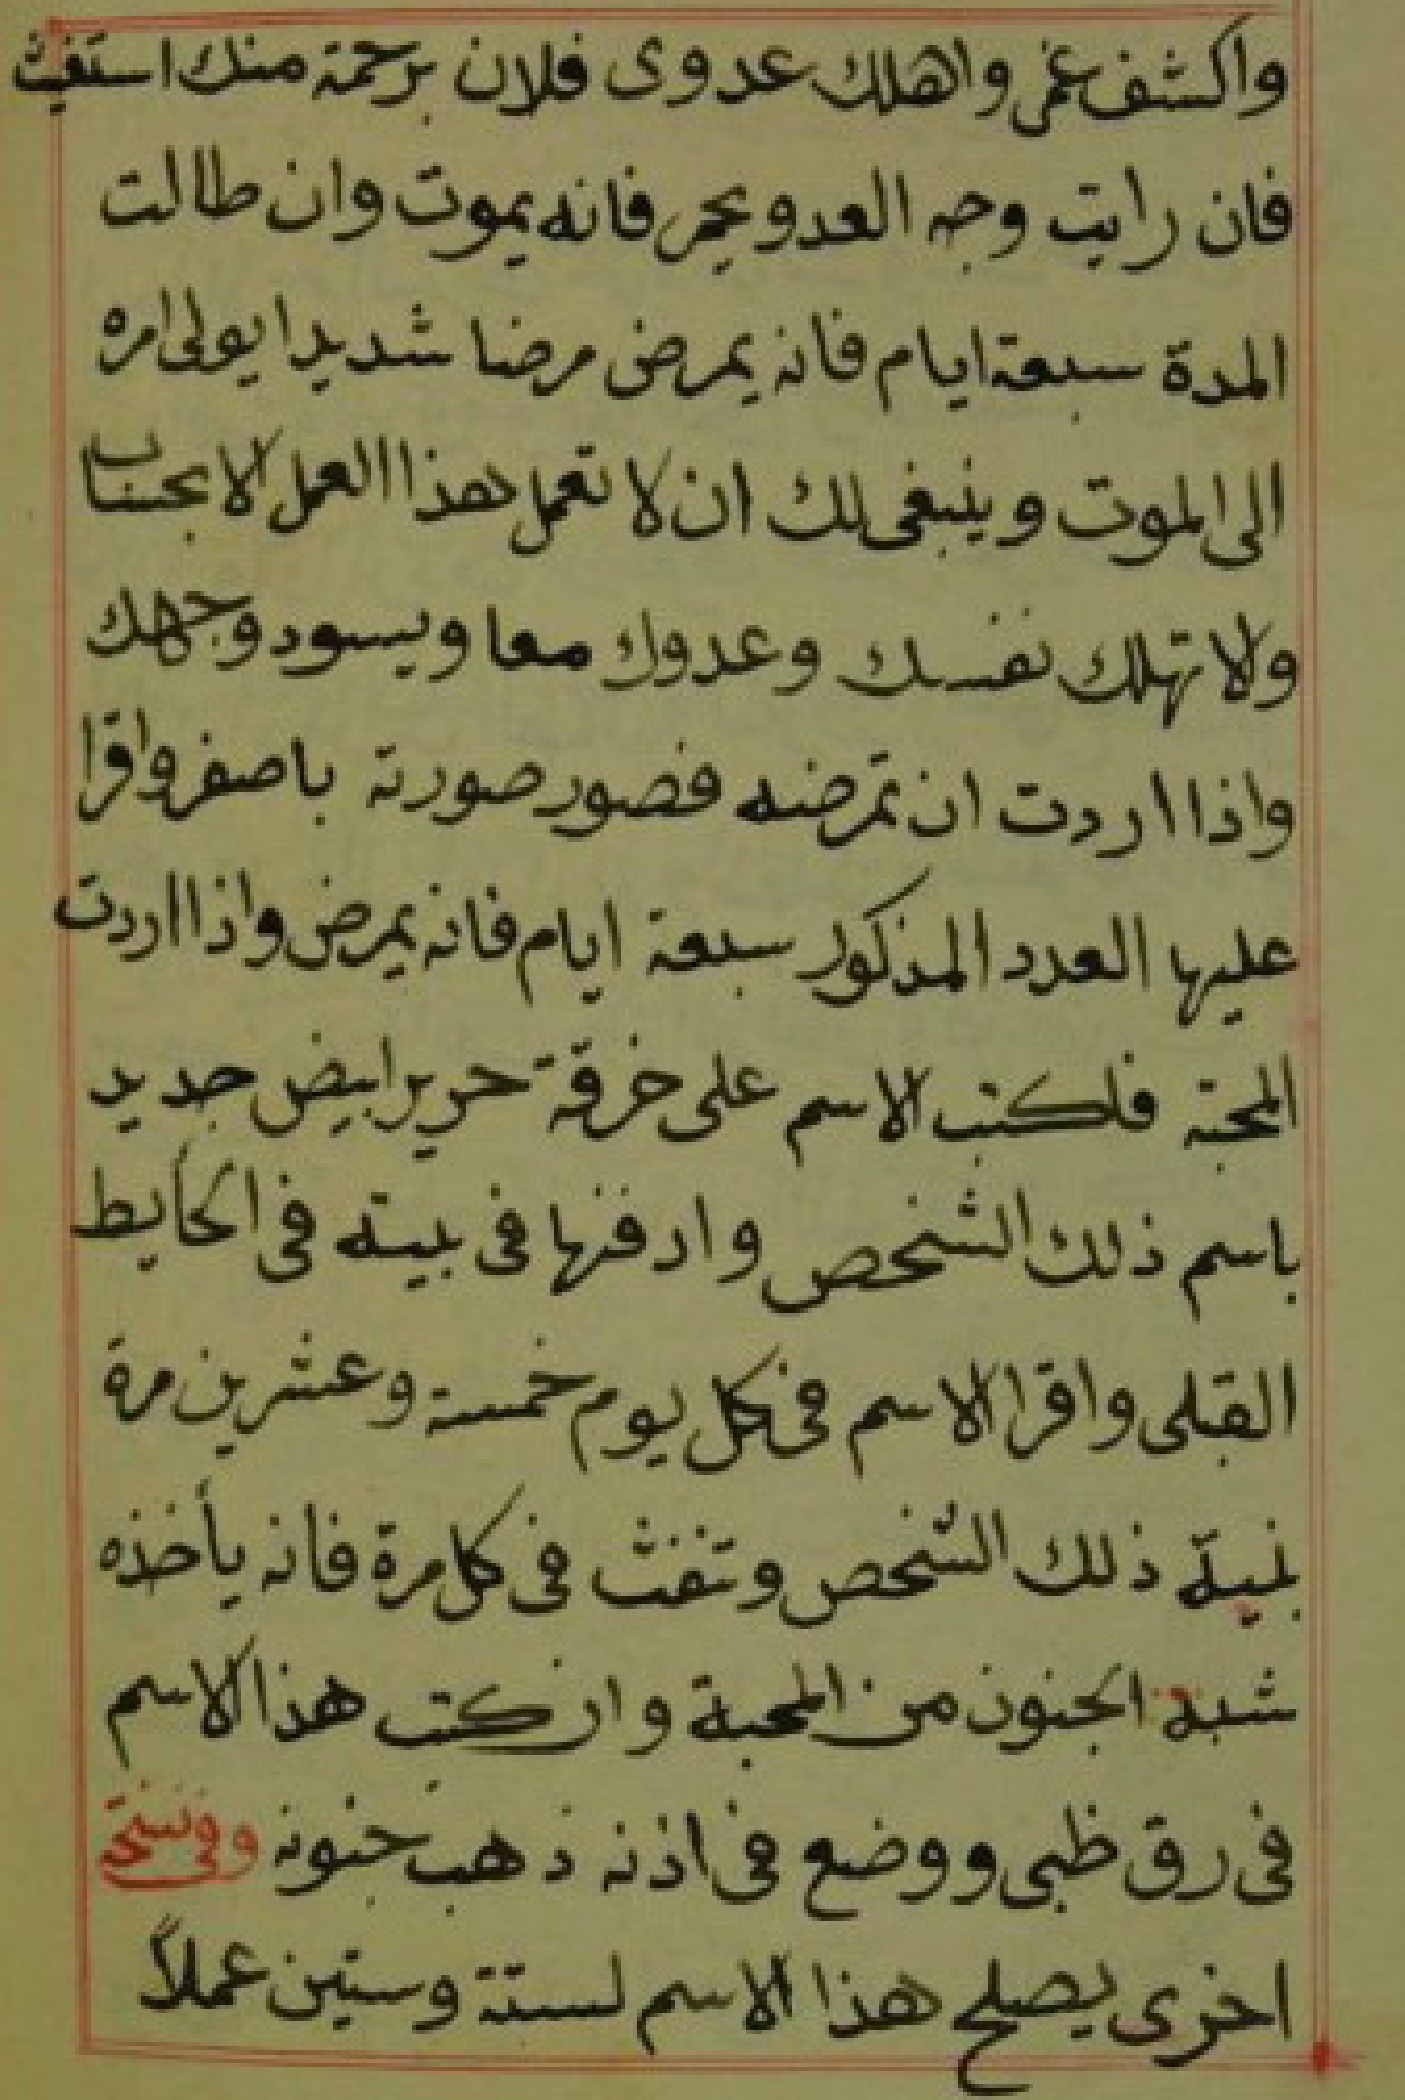 واكشف غمى واهلك عدوى فلان برحمة منك استغيث
فان رايت وجه العدو يحمر فانه يموت وان طالت
المدة سبعة ايام فانه يمرض مرضا شديدا يولى امره
الى الموت وينبغى لك ان لا تعمل هذا العمل الا بحساب
ولا تهلك نفسك وعدوك معا ويسود وجهك
واذا اردت ان تمرضه فصور صورته باصفر واقرا
عليها العدد المذكور سبعة ايام فانه يمرض واذا اردت
المحبة فلكتب الاسم على خرقة حرير ابيض جديد
باسم ذلك الشخص وادفنها فى بيته فى الحايط
القبلى واقرا الاسم فى كل يوم خمسة وعشرين مرة
بنية ذلك الشخص وتنفث فى كل مرة فانه يأخذه
شبة الجنون من المحبة وان كتب هذا الاسم
فى رق ظبى ووضع فى اذنه ذهب جنونه وفى نسخة
اخرى يصلح هذا الاسم لستة وستين عملاً